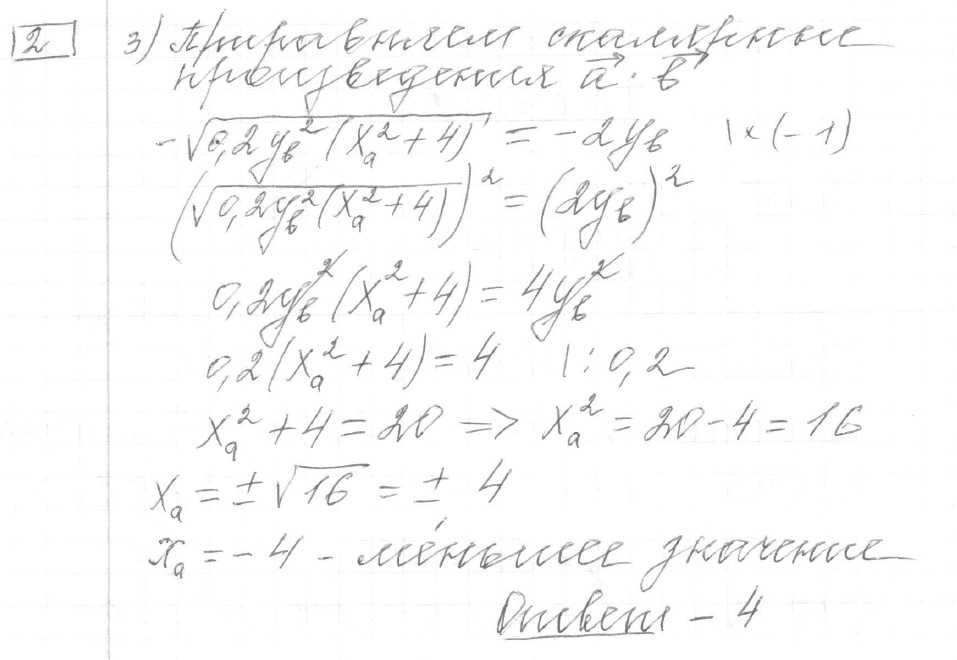 2 3) Приравняем скалярные
произведения a⃗ · b⃗
-√(0,2y_b²(x_a²+4)) = -2y_b |×(-1)
(√(0,2y_b²(x_a²+4)))² = (2y_b)²
0,2y_b²(x_a²+4) = 4y_b²
0,2(x_a²+4) = 4 |:0,2
x_a²+4=20 => x_a²=20-4=16
x_a = ±√16 = ± 4
x_a = -4 - ме́ньшее значение
Ответ - 4